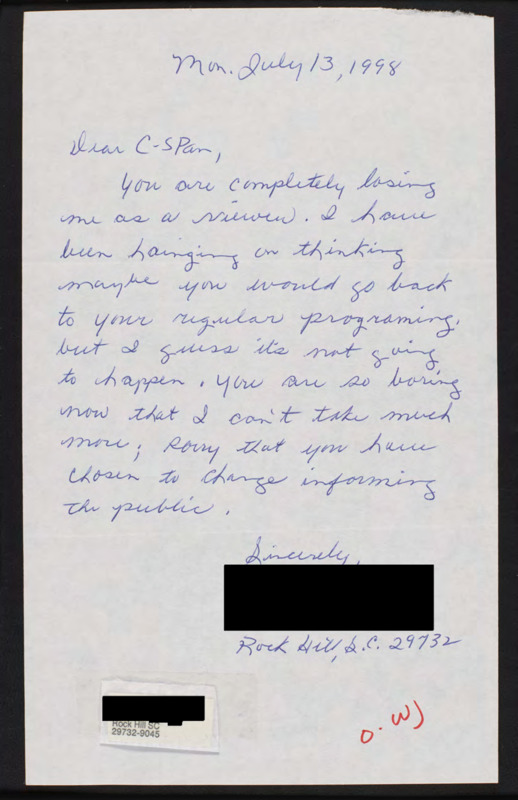 Mon. July 13, 1998
Dear C-SPan,
You are completely losing
me as a viewer. I have
been hainging on thinking
maybe you would go back
to your regular programing,
but I guess it's not going
to happen. You are so boring
now that I can't take much
more; Sorry that you have
chosen to change informing
the public.
Sincerely,
Rock Hill, S.C. 29732
Rock Hill SC
29732-9045